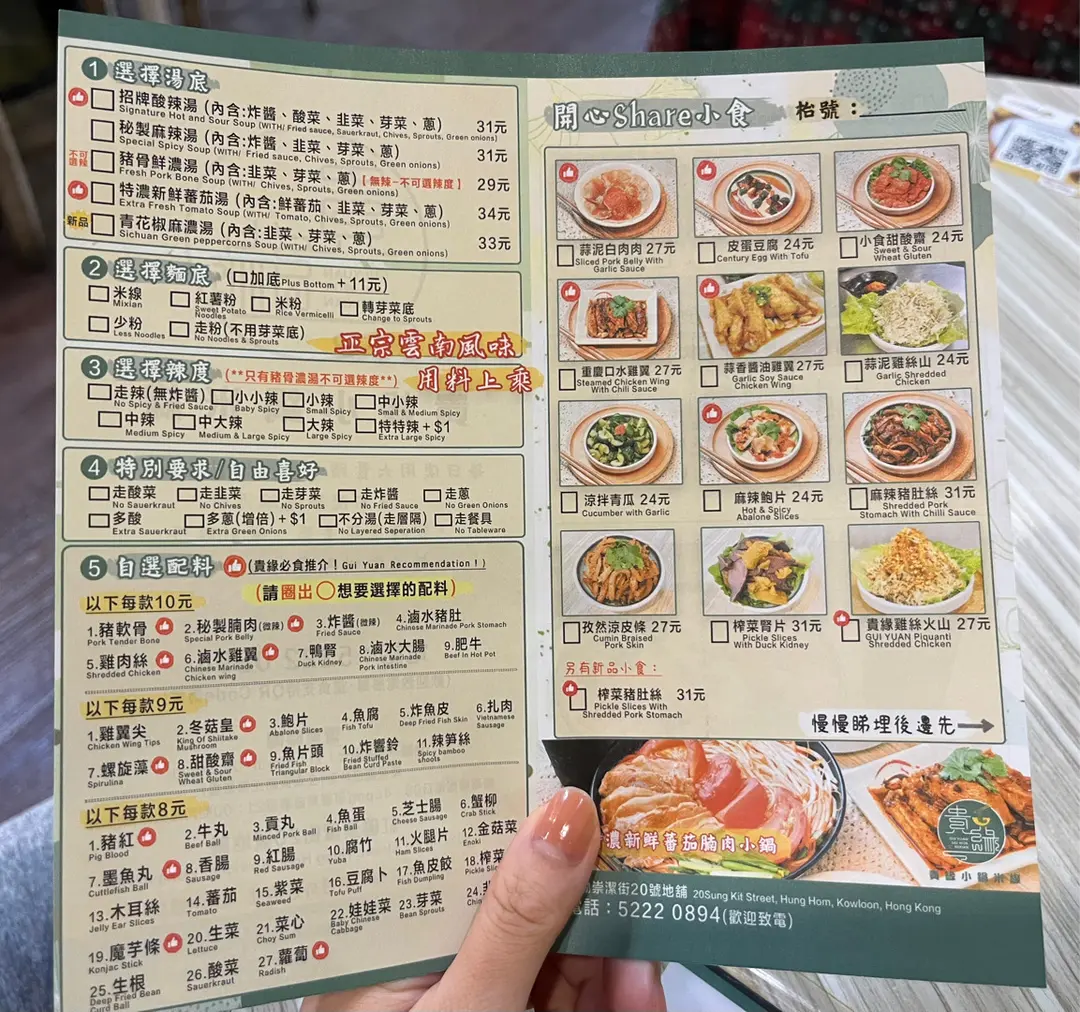 1 選擇湯底
招牌酸辣湯 (內含:炸醬、酸菜、韭菜、芽菜、蔥) 31元
Signature Hot and Sour Soup (WITH/ Fried sauce, Sauerkraut, Chives, Sprouts, Green onions)
秘製麻辣湯 (內含:炸醬、韭菜、芽菜、蔥) 31元
Special Spicy Soup (WITH/ Fried sauce, Chives, Sprouts, Green onions)
不可選辣 豬骨鮮濃湯 (內含:韭菜、芽菜、蔥)【無辣-不可選辣度】 29元
Fresh Pork Bone Soup (WITH/ Chives, Sprouts, Green onions)
特濃新鮮蕃茄湯 (內含:鮮蕃茄、韭菜、芽菜、蔥) 34元
Extra Fresh Tomato Soup (WITH/ Tomato, Chives, Sprouts, Green onions)
新品 青花椒麻濃湯 (內含:韭菜、芽菜、蔥) 33元
Sichuan Green peppercorns Soup (WITH/ Chives, Sprouts, Green onions)
2 選擇麵底 (加底Plus Bottom +11元)
米線 紅薯粉 米粉 轉芽菜底
Mixian Sweet Potato Noodles Rice Vermicelli Change to Sprouts
少粉 走粉(不用芽菜底)
Less Noodles No Noodles & Sprouts
正宗雲南風味
用料上乘
3 選擇辣度 (**只有豬骨濃湯不可選辣度**)
走辣(無炸醬) 小小辣 小辣 中小辣
No Spicy & Fried Sauce Baby Spicy Small Spicy Small & Medium Spicy
中辣 中大辣 大辣 特特辣+$1
Medium Spicy Medium & Large Spicy Large Spicy Extra Large Spicy
4 特別要求/自由喜好
走酸菜 走韭菜 走芽菜 走炸醬 走蔥
No Sauerkraut No Chives No Sprouts No Fried Sauce No Green Onions
多酸 多蔥(增倍)+$1 不分湯(走層隔) 走餐具
Extra Sauerkraut Extra Green Onions No Layered Seperation No Tableware
5 自選配料 (貴緣必食推介！Gui Yuan Recommendation！)
(請圈出〇想要選擇的配料)
以下每款10元
1.豬軟骨 2.秘製腩肉(微辣) 3.炸醬(微辣) 4.滷水豬肚
Pork Tender Bone Special Pork Belly Fried Sauce Chinese Marinade Pork Stomach
5.雞肉絲 6.滷水雞翼 7.鴨腎 8.滷水大腸 9.肥牛
Shredded Chicken Chinese Marinade Chicken wing Duck Kidney Chinese Marinade Pork intestine Beef in Hot Pot
以下每款9元
1.雞翼尖 2.冬菇皇 3.鮑片 4.魚腐 5.炸魚皮 6.扎肉
Chicken Wing Tips King Of Shiitake Mushroom Abalone Slices Fish Tofu Deep Fried Fish Skin Vietnamese Sausage
7.螺旋藻 8.甜酸齋 9.魚片頭 10.炸響鈴 11.辣筍絲
Spirulina Sweet & Sour Wheat Gluten Fried Fish Triangular Block Fried Stuffed Bean Curd Paste Spicy bamboo shoots
以下每款8元
1.豬紅 2.牛丸 3.貢丸 4.魚蛋 5.芝士腸 6.蟹柳
Pig Blood Beef Ball Minced Pork Ball Fish Ball Cheese Sausage Crab Stick
7.墨魚丸 8.香腸 9.紅腸 10.腐竹 11.火腿片 12.金菇菜
Cuttlefish Ball Sausage Red Sausage Yuba Ham Slices Enoki
13.木耳絲 14.蕃茄 15.紫菜 16.豆腐卜 17.魚皮餃 18.榨菜
Jelly Ear Slices Tomato Seaweed Tofu Puff Fish Dumpling Pickle
19.魔芋條 20.生菜 21.菜心 22.娃娃菜 23.芽菜 24.
Konjac Stick Lettuce Choy Sum Baby Chinese Cabbage Bean Sprouts
25.生根 26.酸菜 27.蘿蔔
Deep Fried Bean Curd Ball Sauerkraut Radish
開心Share小食 枱號：
蒜泥白肉肉 27元 皮蛋豆腐 24元 小食甜酸齋 24元
Sliced Pork Belly With Garlic Sauce Century Egg With Tofu Sweet & Sour Wheat Gluten
重慶口水雞翼 27元 蒜香醬油雞翼 27元 蒜泥雞絲山 24元
Steamed Chicken Wing With Chili Sauce Garlic Soy Sauce Chicken Wing Garlic Shredded Chicken
涼拌青瓜 24元 麻辣鮑片 24元 麻辣豬肚絲 31元
Cucumber with Garlic Hot & Spicy Abalone Slices Shredded Pork Stomach With Chilli Sauce
孜然涼皮條 27元 榨菜腎片 31元 貴緣雞絲火山 27元
Cumin Braised Pork Skin Pickle Slices With Duck Kidney GUI YUAN Piquanti Shredded Chicken
另有新品小食：
榨菜豬肚絲 31元
Pickle Slices With Shredded Pork Stomach
慢慢睇埋後邊先
濃新鮮蕃茄腩肉小鍋
貴緣
崇潔街20號地舖 20Sung Kit Street, Hung Hom, Kowloon, Hong Kong
電話：5222 0894(歡迎致電)